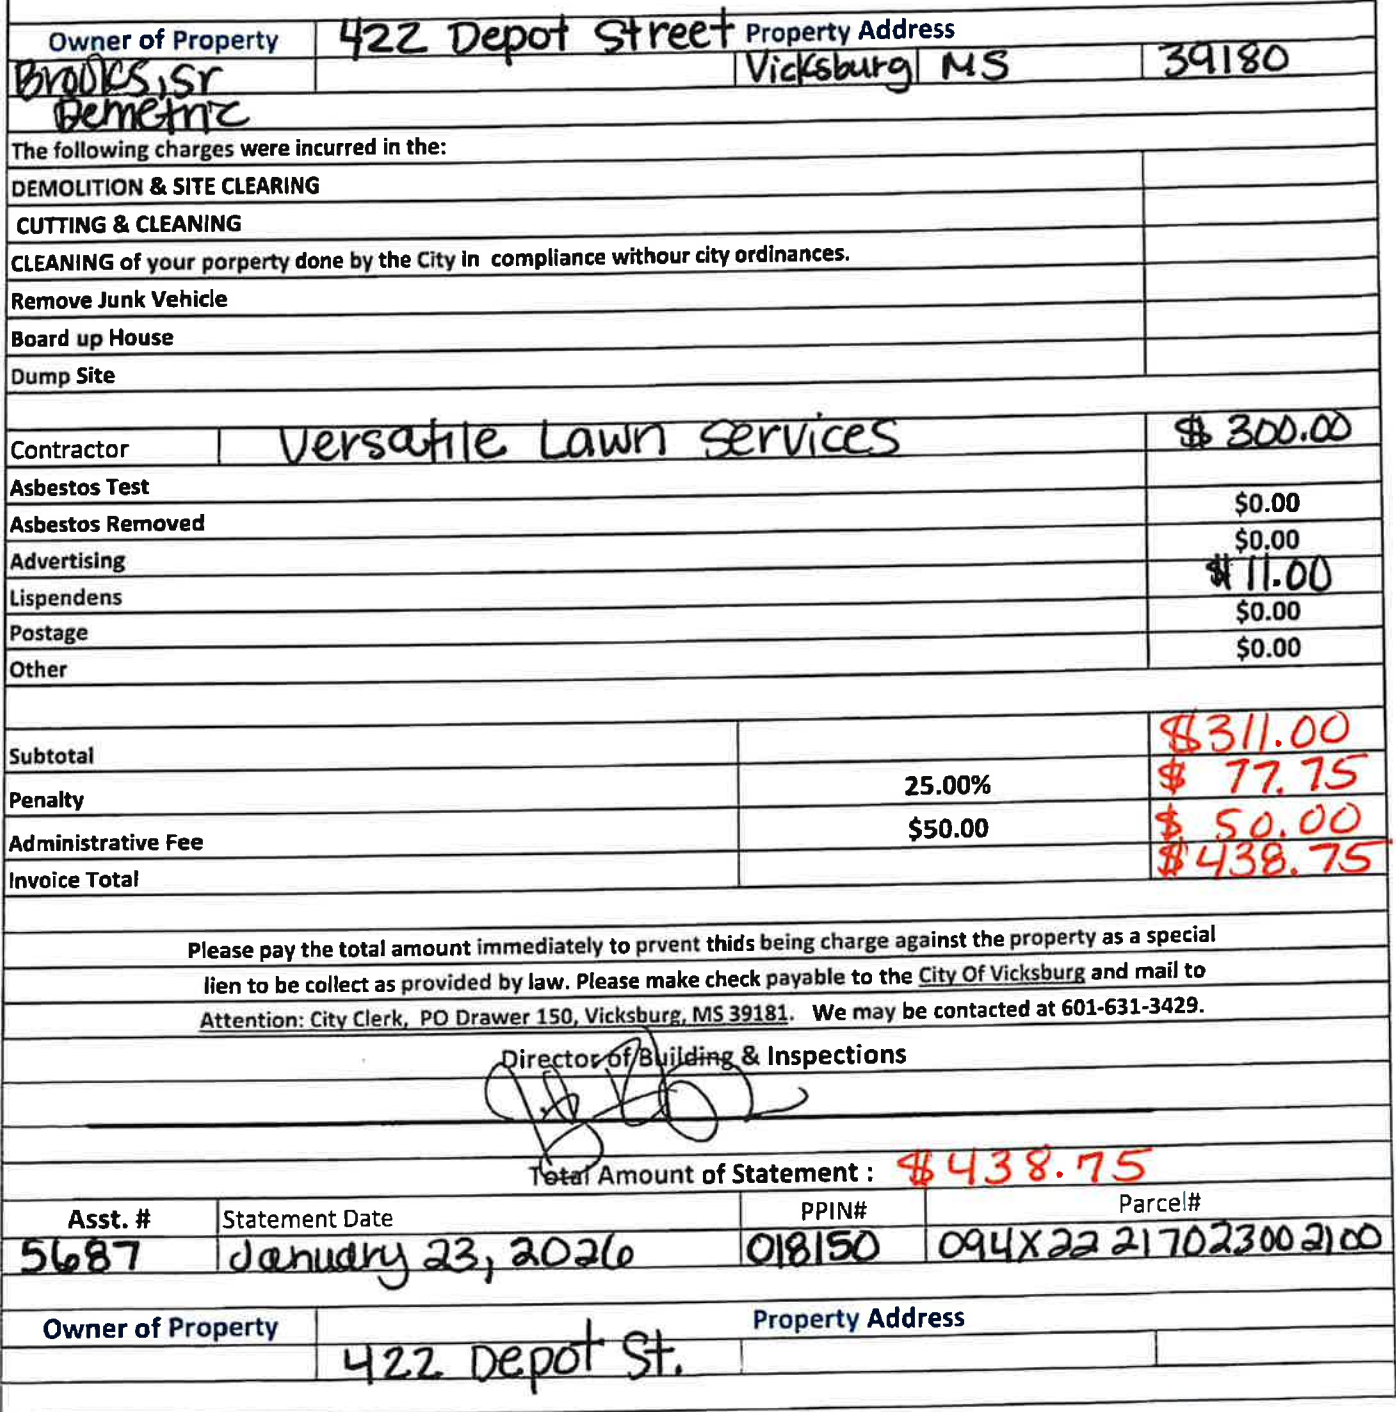 Owner of Property 422 Depot Street Property Address
Brooks, Sr Vicksburg MS 39180
Demetric
The following charges were incurred in the:
DEMOLITION & SITE CLEARING
CUTTING & CLEANING
CLEANING of your porperty done by the City in compliance withour city ordinances.
Remove Junk Vehicle
Board up House
Dump Site
Contractor Versatile Lawn Services $ 300.00
Asbestos Test
Asbestos Removed $0.00
Advertising $0.00
Lispendens $ 11.00
Postage $0.00
Other $0.00
Subtotal $311.00
Penalty 25.00% $ 77.75
Administrative Fee $50.00 $ 50.00
Invoice Total $438.75
Please pay the total amount immediately to prvent thids being charge against the property as a special
lien to be collect as provided by law. Please make check payable to the City Of Vicksburg and mail to
Attention: City Clerk, PO Drawer 150, Vicksburg, MS 39181. We may be contacted at 601-631-3429.
Director of Building & Inspections
Total Amount of Statement : $438.75
Asst. # Statement Date PPIN# Parcel#
5687 January 23, 2026 018150 094X22 217023002100
Owner of Property Property Address
422 Depot St.